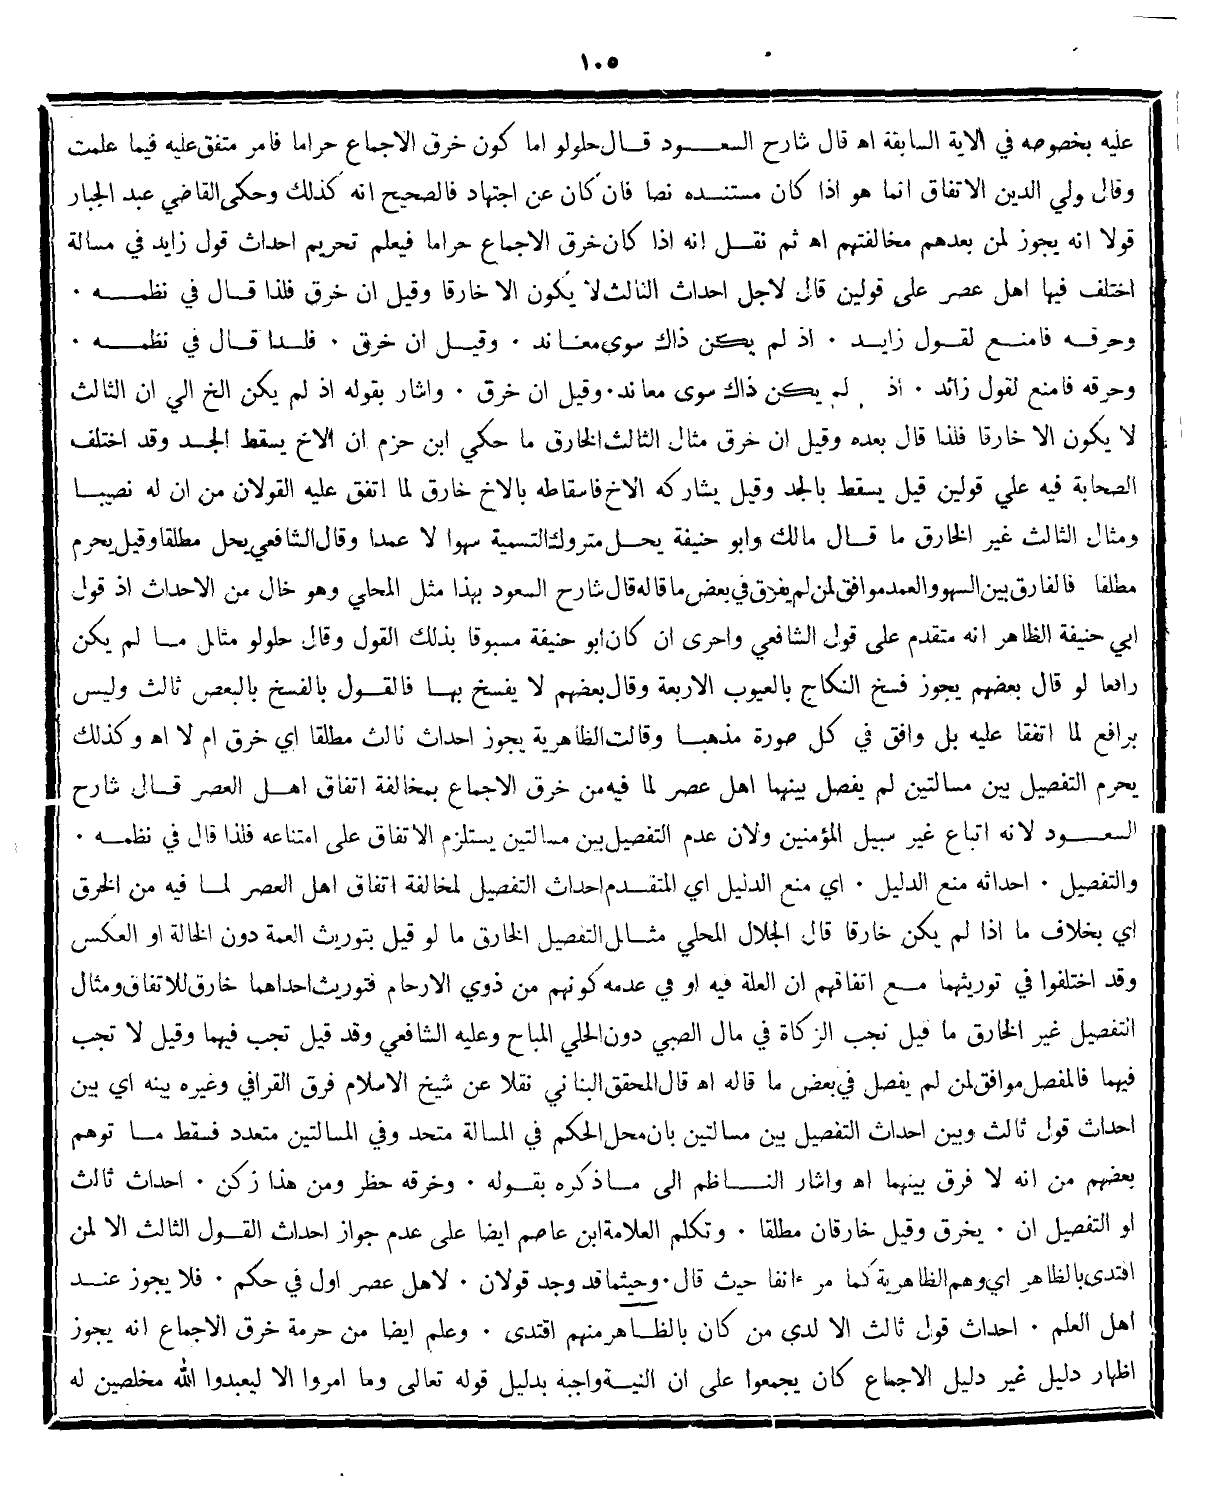 ١٠٥
عليه بخصوصه في الاية السابقة اه قال شارح السعـــود قـال حلولو اما كون خرق الاجماع حراما فامر متفق عليه فيما علمت
وقال ولي الدين الاتفاق انما هو اذا كان مستنـده نصا فان كان عن اجتهاد فالصحيح انه كذلك وحكى القاضي عبد الجبار
قولا انه يجوز لمن بعدهم مخالفتهم اه ثم نقـل انه اذا كان خرق الاجماع حراما فيعلم تحريم احداث قول زايد في مسالة
اختلف فيها اهل عصر على قولين قال لاجل احداث الثالث لا يكون الا خارقا وقيل ان خرق فلذا قـال في نظمــه ٠
وحرقـه فامنـع لقـول زايـد ٠ اذ لم يكن ذاك سوى معـاند ٠ وقيـل ان خرق ٠ فلـذا قـال في نظمــه ٠
وحرقه فامنع لقول زائد ٠ اذ لم يكن ذاك سوى معاند ٠ وقيل ان خرق ٠ واشار بقوله اذ لم يكن الخ الي ان الثالث
لا يكون الا خارقا فلذا قال بعده وقيل ان خرق مثال الثالث الخارق ما حكي ابن حزم ان الاخ يسقط الجـد وقد اختلف
الصحابة فيه علي قولين قيل يسقط بالجد وقيل يشاركه الاخ فاسقاطه بالاخ خارق لما اتفق عليه القولان من ان له نصيبـا
ومثال الثالث غير الخارق ما قـال مالك وابو حنيفة يحـل متروك التسمية سهوا لا عمدا وقال الشافعي يحل مطلقا وقيل يحرم
مطلقا فالفارق بين السهو والعمد موافق لمن لم يفرق في بعض ما قاله قال شارح السعود بهذا مثل المحلي وهو خال من الاحداث اذ قول
ابي حنيفة الظاهر انه متقدم على قول الشافعي واحرى ان كان ابو حنيفة مسبوقا بذلك القول وقال حلولو مثال مـا لم يكن
رافعا لو قال بعضهم يجوز فسخ النكاح بالعيوب الاربعة وقال بعضهم لا يفسخ بهـا فالقـول بالفسخ بالبعص ثالث وليس
برافع لما اتفقا عليه بل وافق في كل صورة مذهبـا وقالت الظاهرية يجوز احداث ثالث مطلقا اي خرق ام لا اه وكذلك
يحرم التفصيل بين مسالتين لم يفصل بينهما اهل عصر لما فيه من خرق الاجماع بمخالفة اتفاق اهـل العصر قـال شارح
السعـــود لانه اتباع غير سبيل المؤمنين ولان عدم التفصيل بين مسالتين يستلزم الاتفاق على امتناعه فلذا قال في نظمــه ٠
والتفصيل ٠ احداثه منع الدليل ٠ اي منع الدليل اي المتقـدم احداث التفصيل لمخالفة اتفاق اهل العصر لمـا فيه من الخرق
اي بخلاف ما اذا لم يكن خارقا قال الجلال المحلي مثـال التفصيل الخارق ما لو قيل بتوريث العمة دون الخالة او العكس
وقد اختلفوا في توريثهما مـع اتفاقهم ان العلة فيه او في عدمه كونهم من ذوي الارحام فتوريث احداهما خارق للاتفاق ومثال
التفصيل غير الخارق ما قيل تجب الزكاة في مال الصبي دون الحلي المباح وعليه الشافعي وقد قيل تجب فيهما وقيل لا تجب
فيهما فالمفصل موافق لمن لم يفصل في بعض ما قاله اه قال المحقق البناني نقلا عن شيخ الاسلام فرق القرافي وغيره بينه اي بين
احداث قول ثالث وبين احداث التفصيل بين مسالتين بان محل الحكم في المسالة متحد وفي المسالتين متعدد فسقط مـا توهم
بعضهم من انه لا فرق بينهما اه واشار النـاظم الى مـا ذكره بقـوله ٠ وخرقه حظر ومن هذا زكن ٠ احداث ثالث
او التفصيل ان ٠ يخرق وقيل خارقان مطلقا ٠ وتكلم العلامة ابن عاصم ايضا على عدم جواز احداث القـول الثالث الا لمن
اقتدى بالظاهر اي وهم الظاهرية كما مر ءانفا حيث قال ٠ وحيثما قد وجد قولان ٠ لاهل عصر اول في حكم ٠ فلا يجوز عنـد
اهل العلم ٠ احداث قول ثالث الا لدى من كان بالظـاهر منهم اقتدى ٠ وعلم ايضا من حرمة خرق الاجماع انه يجوز
اظهار دليل غير دليل الاجماع كان يجمعوا على ان النيـة واجبة بدليل قوله تعالى وما امروا الا ليعبدوا الله مخلصين له